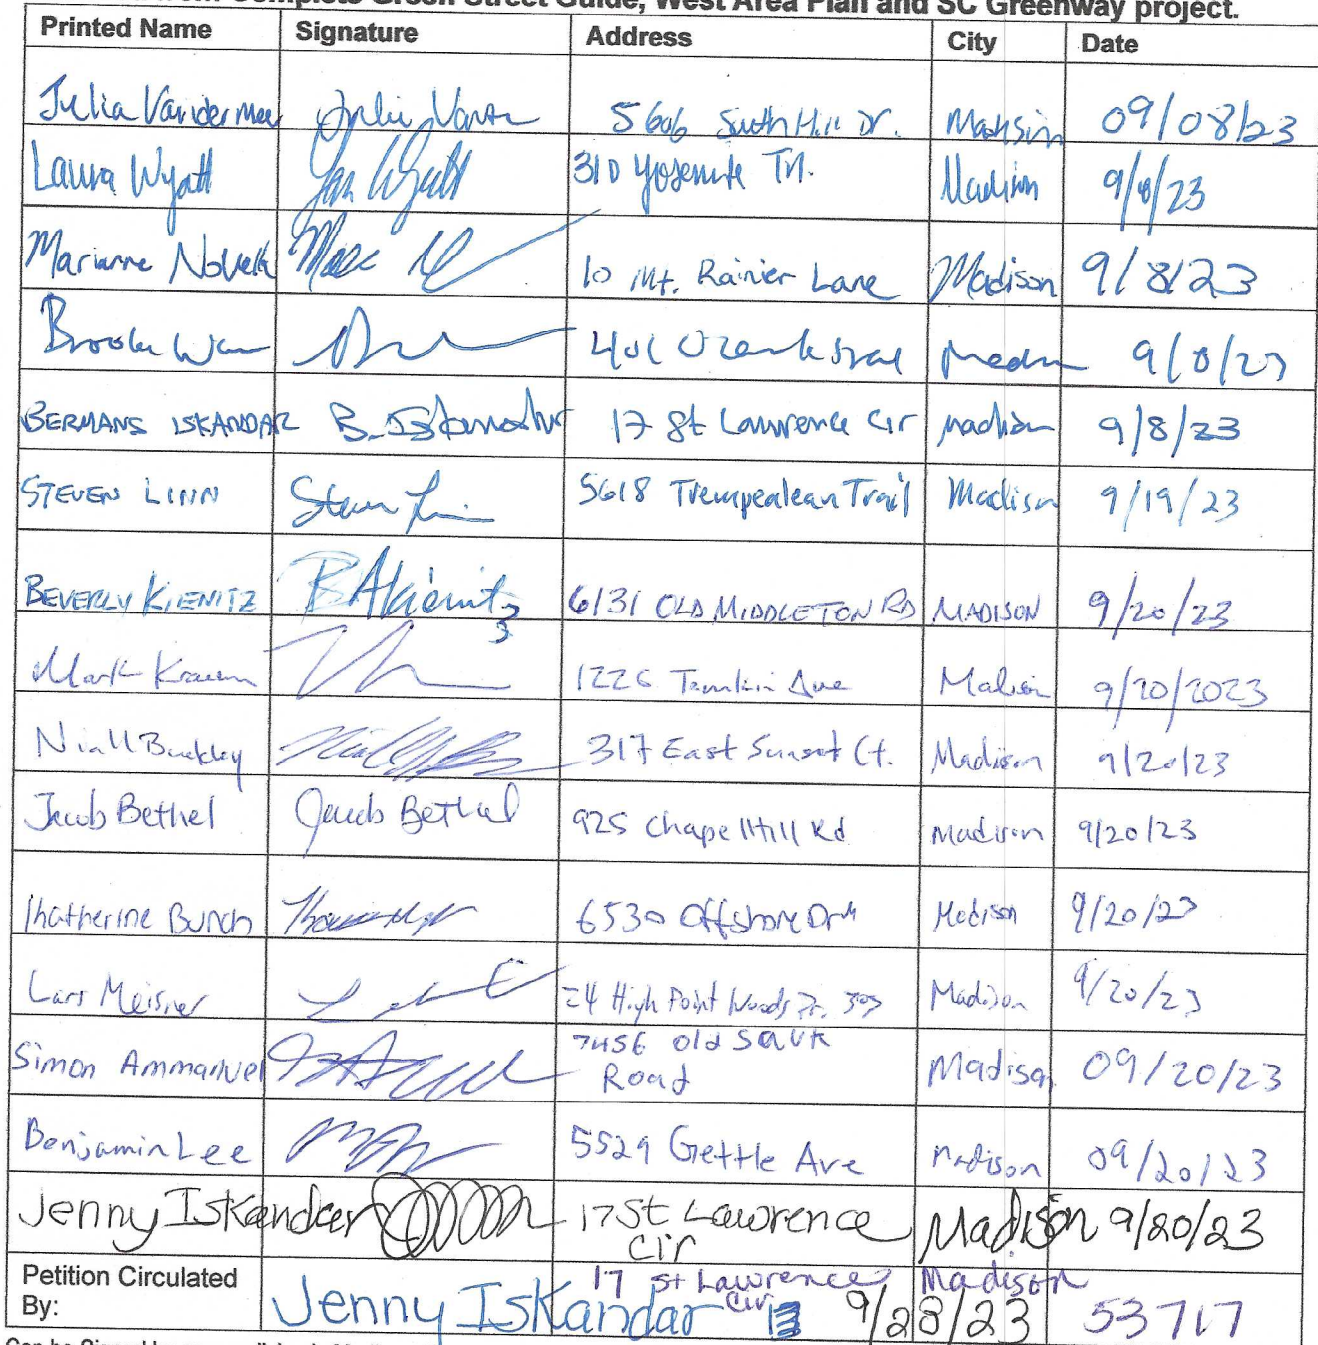 Complete Green Street Guide, West Area Plan and SC Greenway project.
Printed Name Signature Address City Date
Julia Vandermee 5606 South Hill Dr. Madison 09/08/23
Laura Wyatt 310 Yosemite Trl. Madison 9/8/23
Marianne Novella 10 Mt. Rainier Lane Madison 9/8/23
Brooke 401 Ozark Trail 9/8/23
BERMANS ISKANDAR B. Iskandar 17 St Lawrence Cir Madison 9/8/23
STEVEN LINN Steven Linn 5618 Trempealeau Trail Madison 9/19/23
BEVERLY KIENITZ BAKienitz 6131 OLD MIDDLETON RD MADISON 9/20/23
Mark 1225 Ave Madison 9/20/2023
Niall Buckley 317 East Sunset Ct. Madison 9/20/23
Jacob Bethel Jacob Bethel 925 Chapel Hill Rd Madison 9/20/23
Khatherine Bunch 6530 Offshore Dr Madison 9/20/23
Lars Meisner 24 High Point Woods Dr. 303 Madison 9/20/23
Simon Ammanuel 7456 old Sauk
Road Madison 09/20/23
Benjamin Lee 5529 Gettle Ave Madison 09/20/23
Jenny Iskandar 17 St Lawrence
Cir Madison 9/20/23
Petition Circulated
By: Jenny Iskandar 17 St Lawrence
Cir Madison 9/28/23 53717